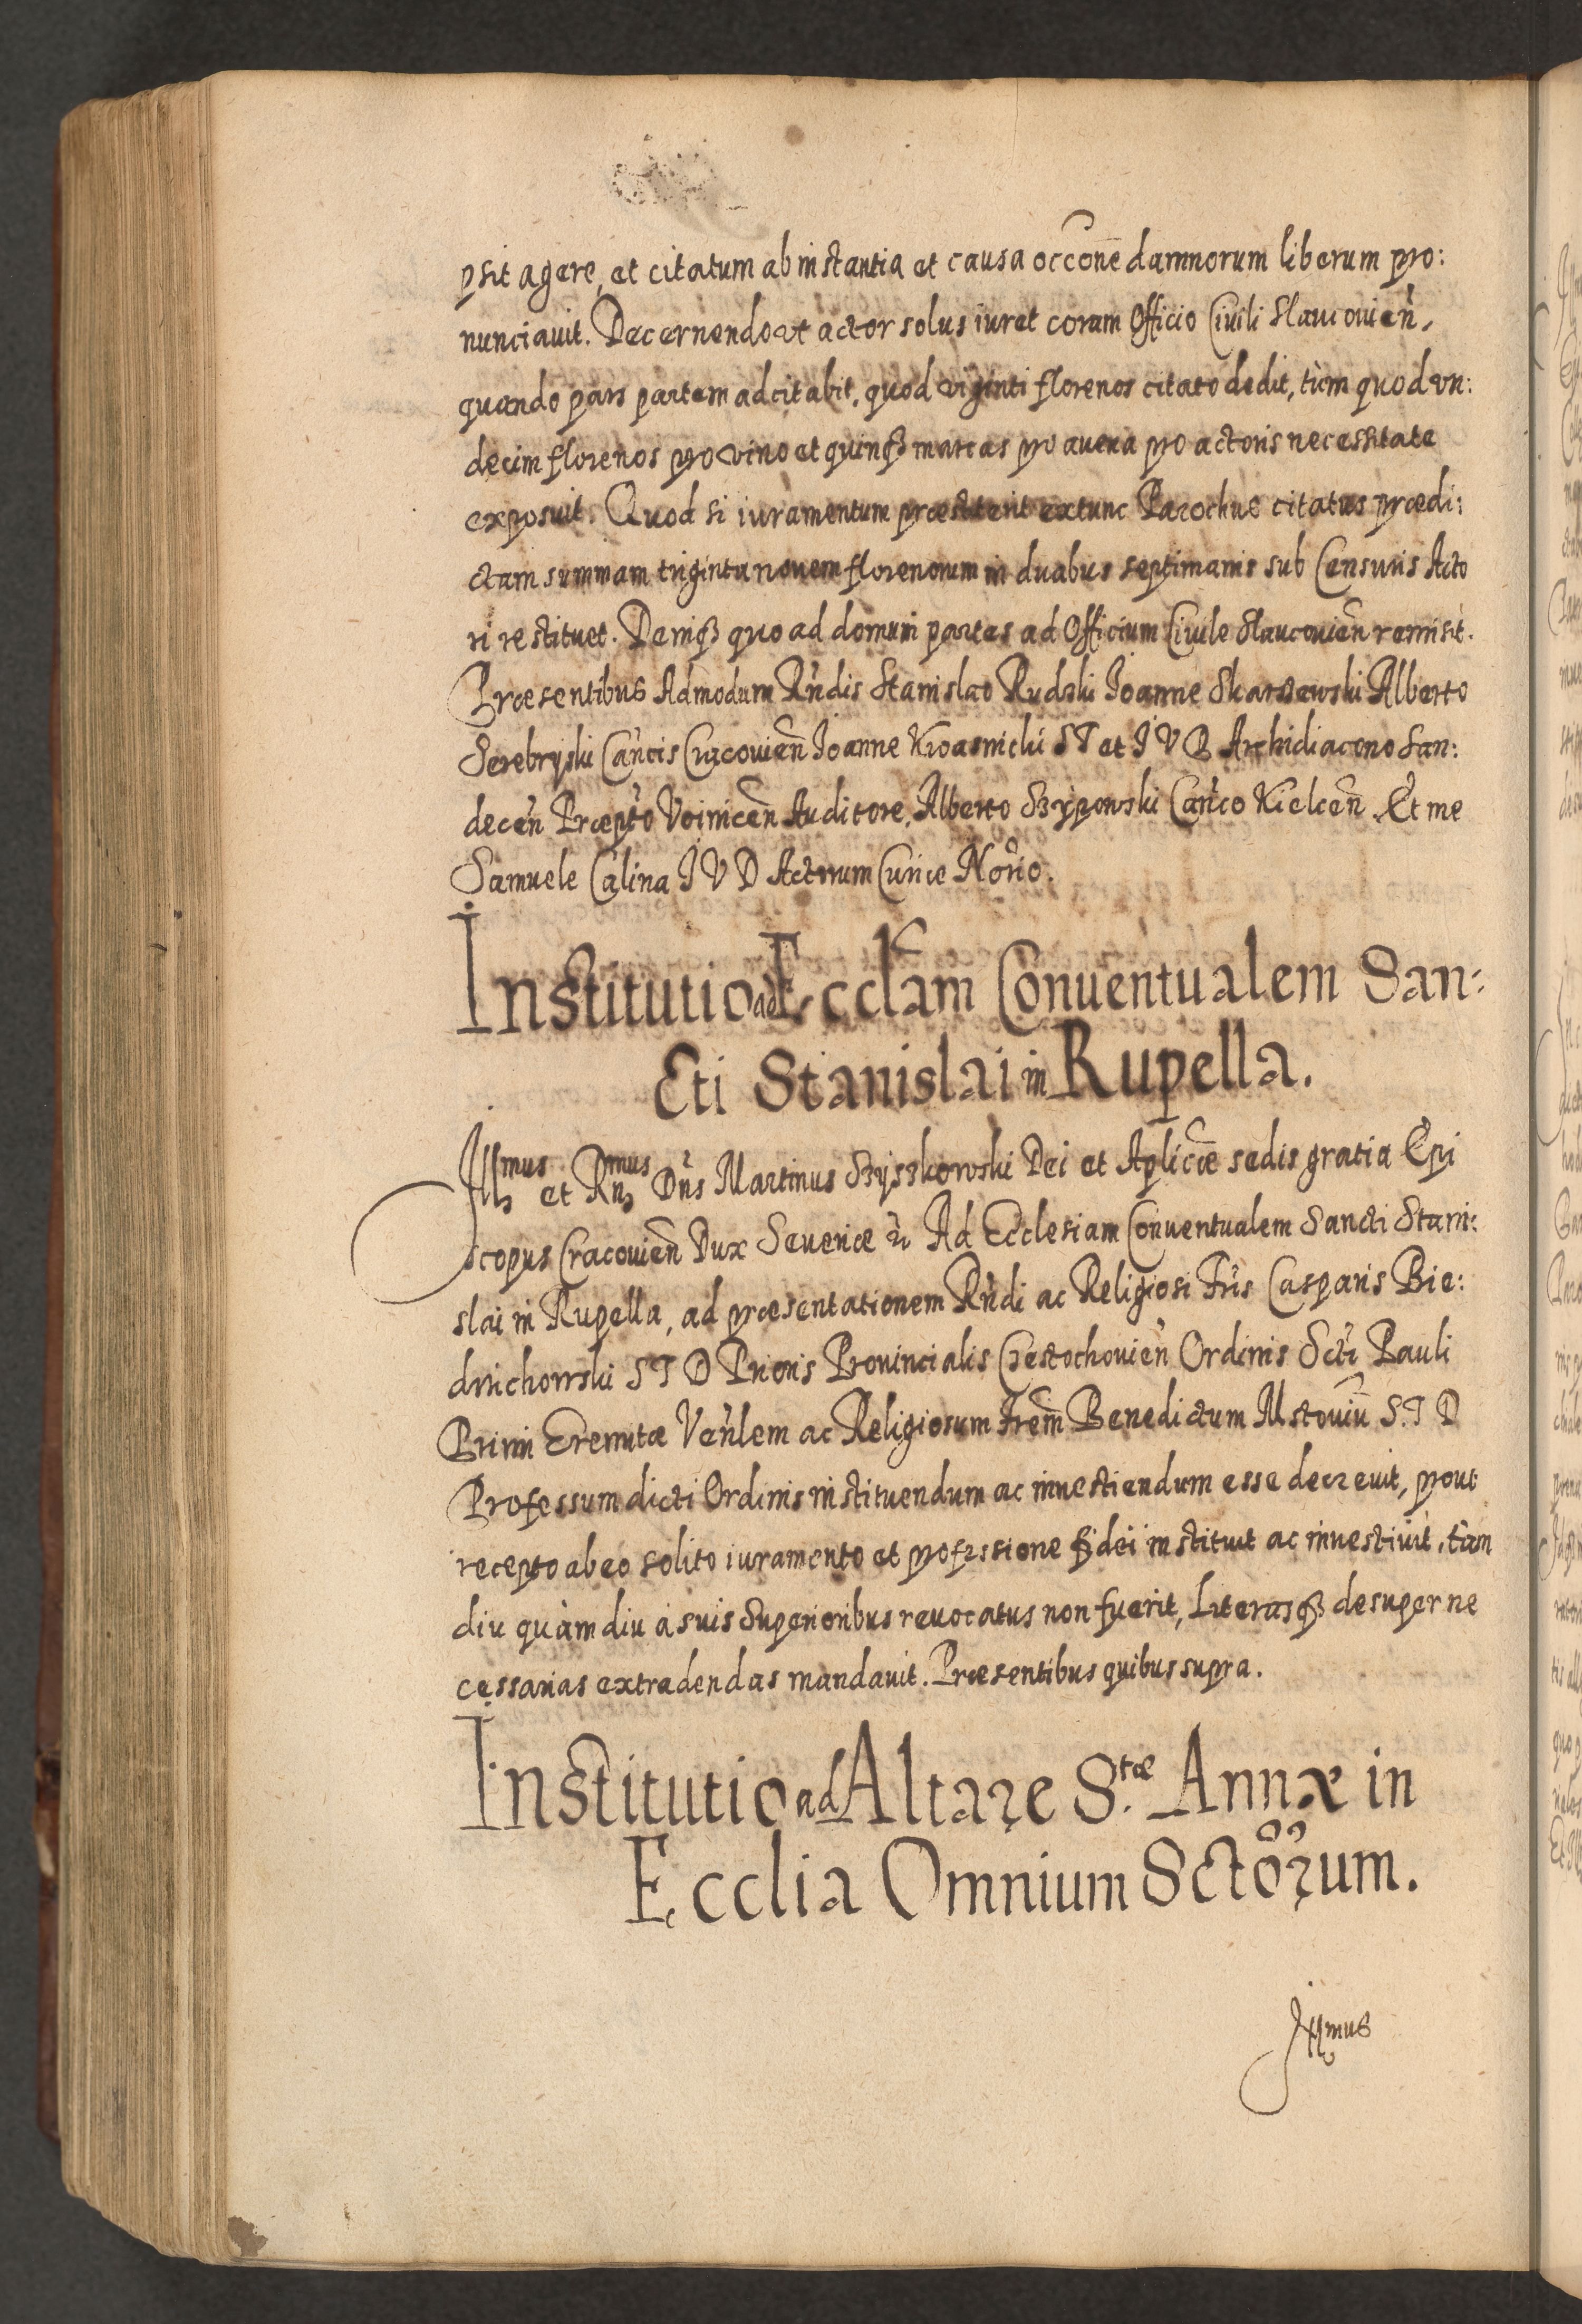 psit agere, et citatum ab instantia et causa occõne damnorum liberum pro:
nunciauit. Decernendo vt actor solus iuret coram Officio Ciuili Slaucouień,
quando pars partem adcitabit, quod viginti florenos citato dedit, tùm quod vn:
decim florenos pro vino et quinqȝ marcas pro auena pro actoris necessitate
exposuit. Quod si iuramentum præstiterit extunc Parochus citatus prædi:
ctam summam triginta nouem florenorum in duabus septimanis sub Censuris Acto
ri restituet. Deniqȝ quo ad domum partes ad Officium Ciuile Slaucouień remisit.
Præsentibus Admodum Rńdis Stanislao Rudski Joanne Skarszewski Alberto
Serebryski Cańcis Cracouień Joanne Kwasnicki S T et I V D Archidiacono San:
deceń Præpto Voiniceń Auditore, Alberto Szÿpowski Cańco Kielceń. Et me
Samuele Calina I V D Actorum Curiæ Norio.
Institutio ad Ecclam Conuentualem San:
cti Stanislai in Rupella.
Jllmus et Rmus Dńs Martinus Szÿszkowski Dei et Aplicæ sedis gratia Epi
scopus Cracouień Dux Seueriæ &c Ad Ecclesiam Conuentualem Sancti Stani:
slai in Rupella, ad præsentationem Rńdi ac Religiosi Fris Casparis Bie:
drzichowski S T D Prioris Prouincialis Czestochouień Ordinis Scti Pauli
Primi Eremitæ Veńlem ac Religiosum Frem Benedictum Mstouiū S. T D
Professum dicti Ordinis instituendum ac inuestiendum esse decreuit, prout
recepto ab eo solito iuramento et professione fidei instituit ac inuestiuit, tàm
diu quàm diu à suis Superioribus reuocatus non fuerit, Literasqȝ desuper ne
cessarias extradendas mandauit. Præsentibus quibus supra.
Institutio ad Altare S.tæ Annæ in
Ecclia Omnium Sctorum.
Jllmus